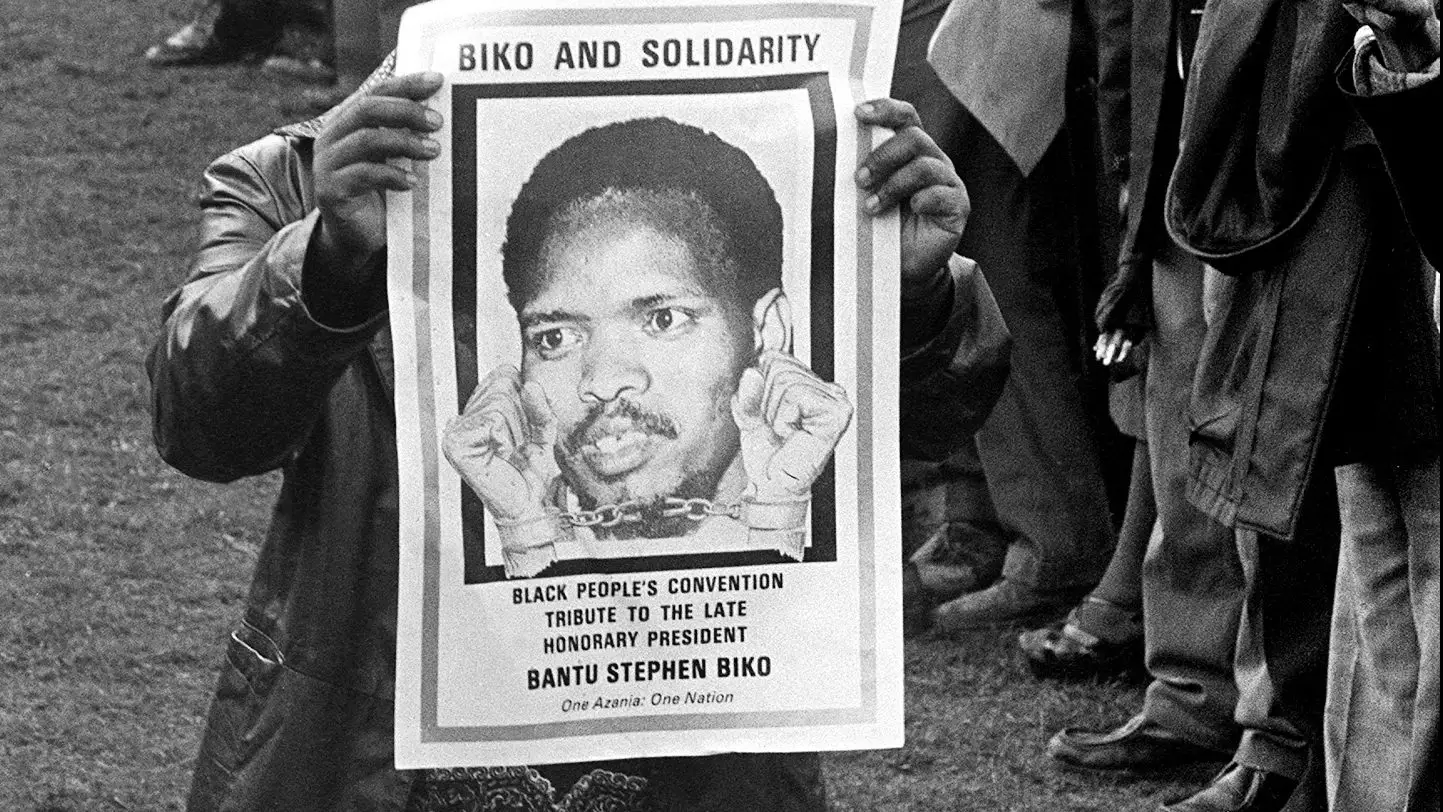 BIKO AND SOLIDARITY
BLACK PEOPLE'S CONVENTION
TRIBUTE TO THE LATE
HONORARY PRESIDENT
BANTU STEPHEN BIKO
One Azania: One Nation